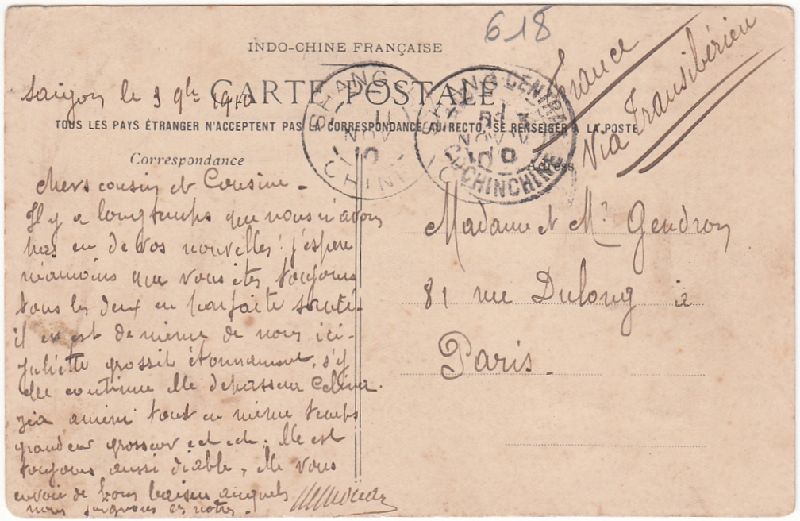 618
INDO-CHINE FRANÇAISE
France
Via Transibérien
CARTE POSTALE
TOUS LES PAYS ÉTRANGER N'ACCEPTENT PAS LA CORRESPONDANCE AU RECTO, SE RENSEIGER A LA POSTE
SHANG CHINE
NOV
10
SHANG
CENTRAL
COCHINCHINE
Correspondance
Saigon le 9 9bre 1910
Chers cousin et Cousine.
Il y a longtemps que nous n'avons
pas eu de vos nouvelles; j'espère
néamoins que vous êtes toujours
tous les deux en parfaite santé.
il en est de même de nous ici.
Juliette grossit étonnament, s'y
elle continue elle depassera
tout en même temps
grandeur grosseur ect ect; Elle est
toujours aussi diable, Elle vous
envoie de bons baisers auxquels
nous joignons les notres.
Madame et Mr Gendron
81 rue Dulong
Paris.